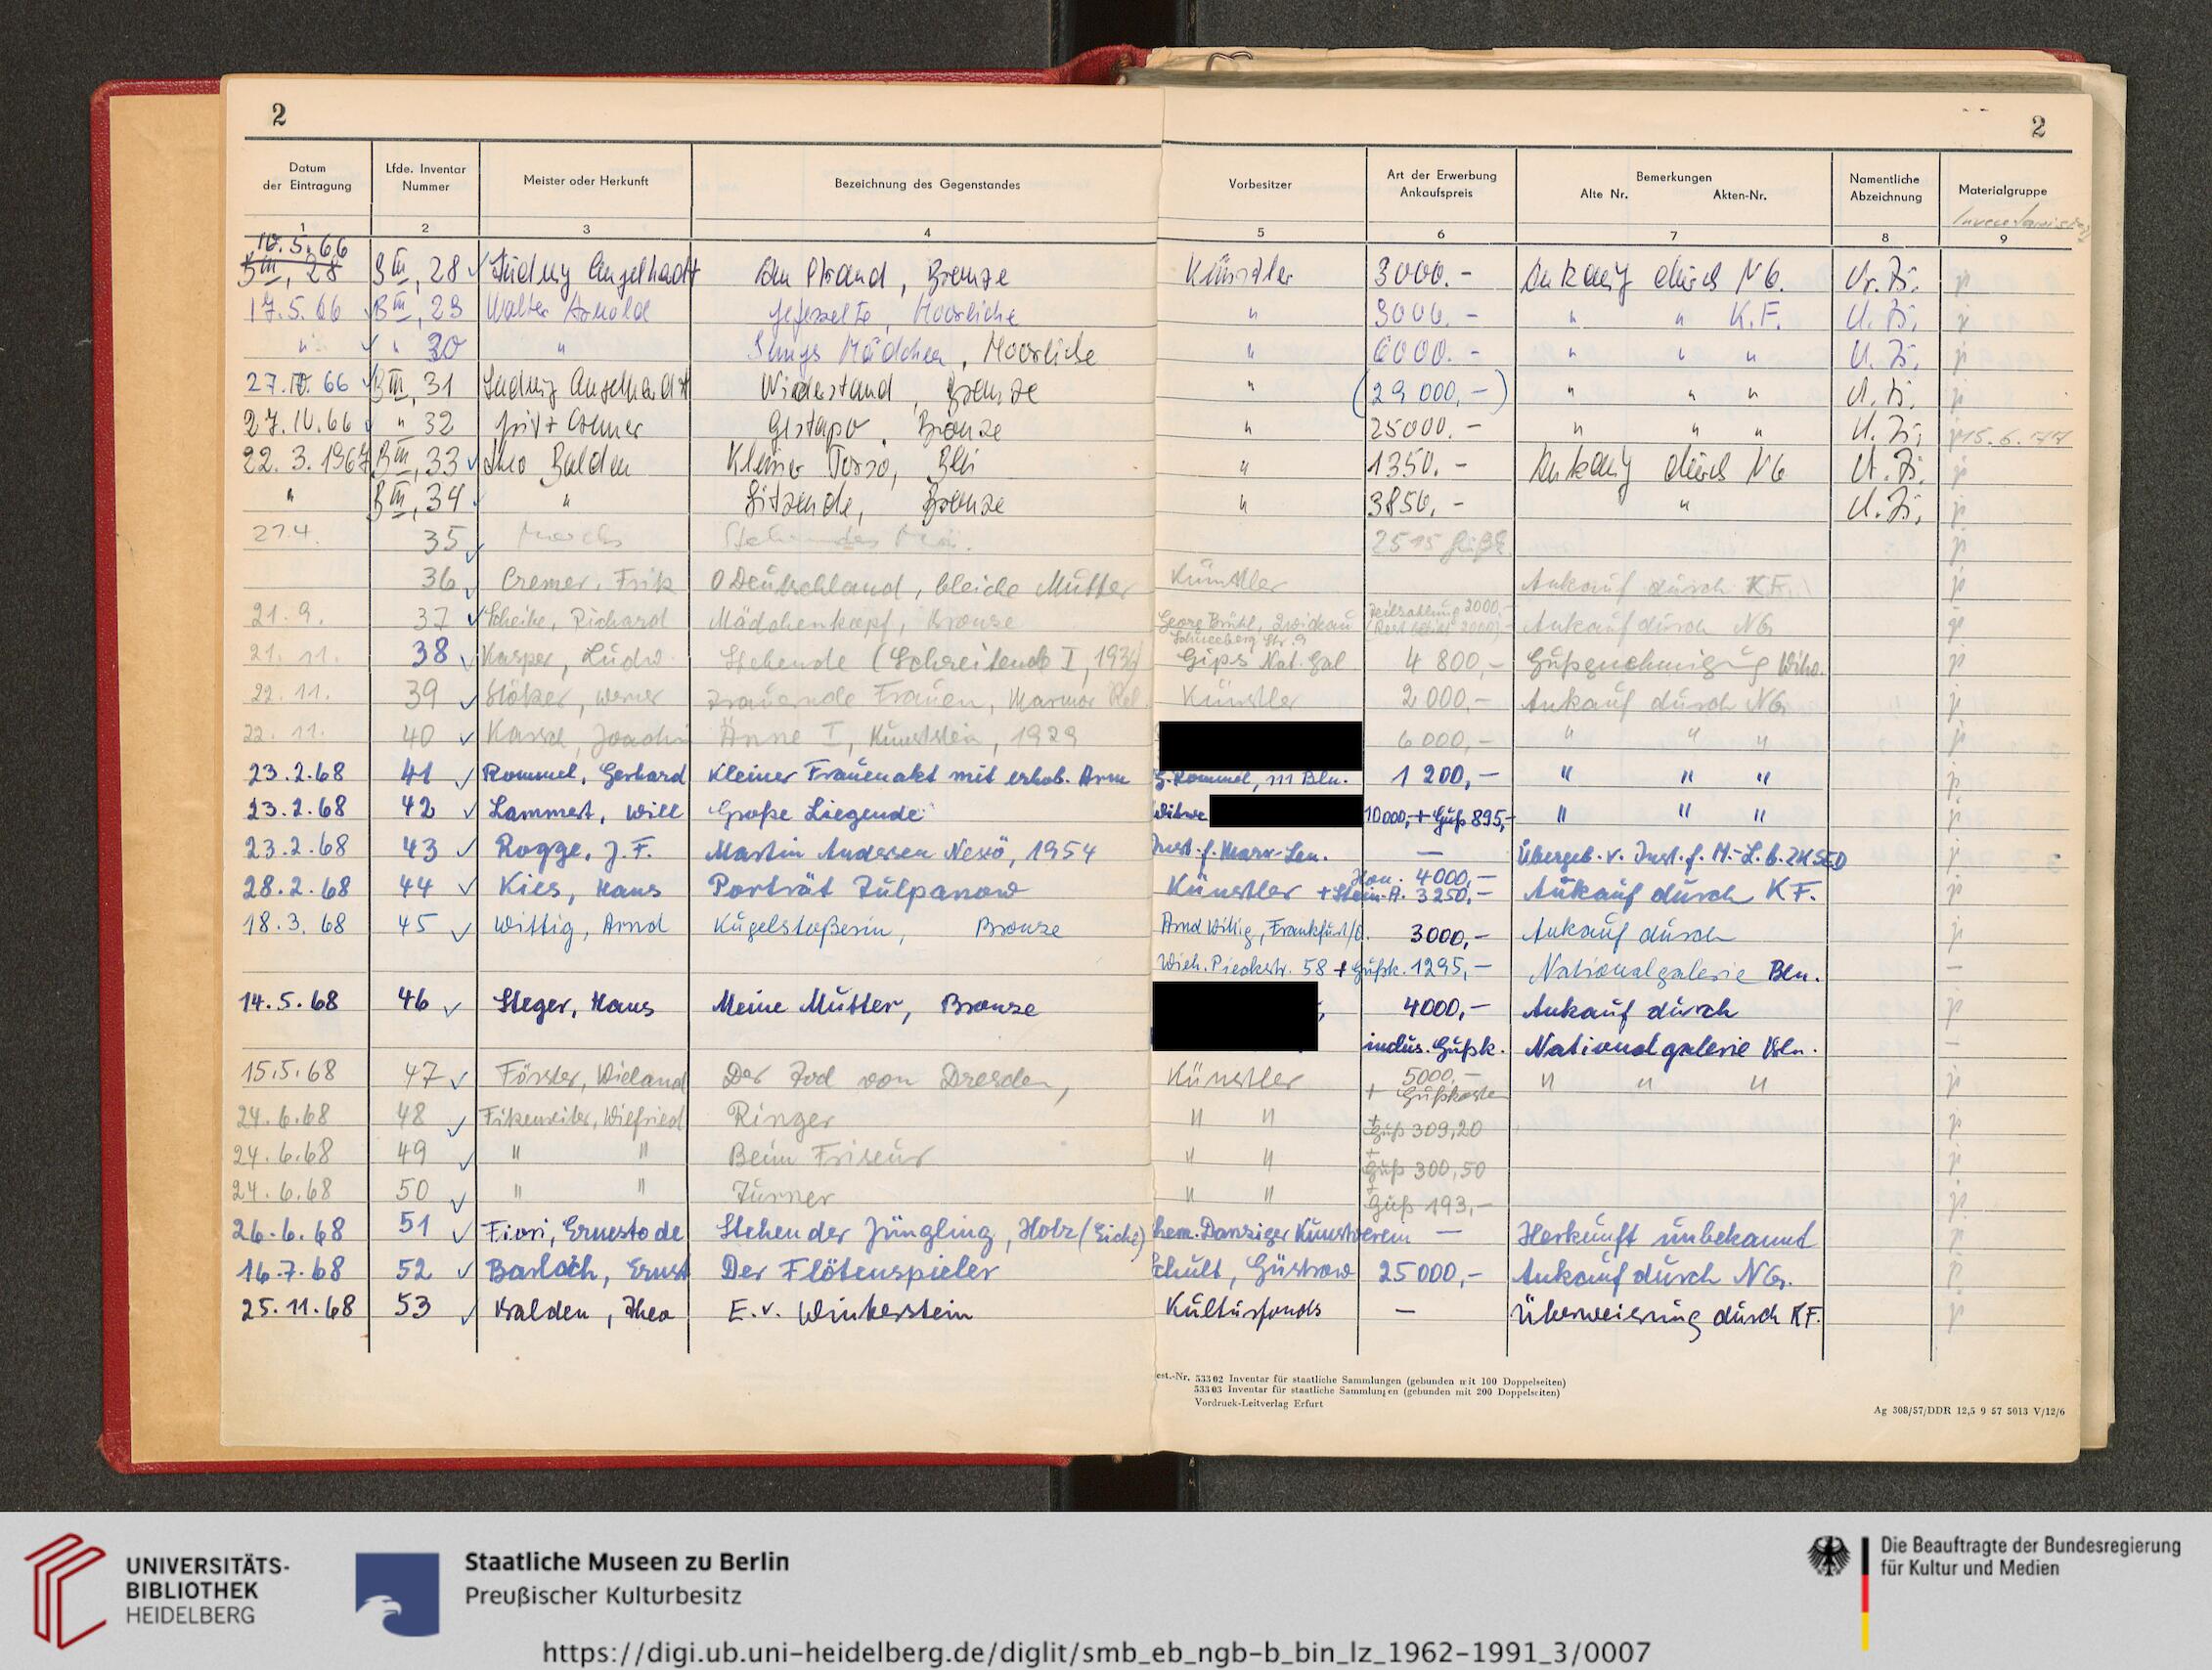 2 2
Datum der Eintragung Lfde. Inventar Nummer Meister oder Herkunft Bezeichnung des Gegenstandes Vorbesitzer Art der Erwerbung Ankaufspreis Bemerkungen Alte Nr. Akten-Nr. Namentliche Abzeichnung Materialgruppe
1 2 3 4 5 6 7 8 9
10.5.66 B III, 28 Ludwig Engelhardt Am Strand, Bronze Künstler 3000.- Ankauf durch NG.
17.5.66 B III, 29 Walter Arnold Gefesselte, Mooreiche " 9000.- " " K.F.
" " 30 " Junges Mädchen, Mooreiche " 6000.- " " "
27.10.66 B III, 31 Ludwig Engelhardt Widerstand, Bronze " (29 000,-) " " "
27.10.66 " 32 Fritz Cremer Gestapo, Bronze " 25000.- " " " 15.6.77
22.3.1967 B III, 33 Theo Balden Kleiner Torso, Blei " 1350.- Ankauf durch NG
" B III, 34 " Sitzende, Bronze " 3850,- "
27.4. 35 Marcks 2515
36 Cremer, Fritz O Deutschland, bleiche Mutter Künstler Ankauf durch K.F.
21.9. 37 Scheibe, Richard Mädchenkopf, Bronze Georg Brühl, Zwickau Schneeberg Str. 9 Teilzahlung 2000,- Ankauf durch NG
21.11. 38 Kasper, Ludw. Stehende (Schreitende I, 1934) Gips Nat. Gal 4 800,- Gußgenehmigung Witw.
22.11. 39 Stötzer, Werner Trauernde Frauen, Marmor Rel. Künstler 2 000,- Ankauf durch NG
22.11. 40 Karsch, Joachim Änne I, Kunststein, 1929 6 000,- " " "
23.2.68 41 Rommel, Gerhard Kleiner Frauenakt mit erhob. Arm G. Rommel, 111 Bln. 1 200,- " " "
23.2.68 42 Lammert, Will Große Liegende Witwe 10 000,- + Guß 895,- " " "
23.2.68 43 Rogge, J.F. Martin Andersen Nexö, 1954 Inst. f. Marx-Len. — Übergeb. v. Inst. f. M.-L. b. ZK SED
28.2.68 44 Kies, Hans Porträt Tulpanow Künstler Hon. 4000,- + Stein-A. 3250,- Ankauf durch KF.
18.3.68 45 Wittig, Arnd Kugelstoßerin, Bronze Arnd Wittig, Frankfurt/O. 3000,- Ankauf durch
Wilh. Pieckstr. 58 + Gußk. 1295,- Nationalgalerie Bln. —
14.5.68 46 Steger, Hans Meine Mutter, Bronze 4000,- Ankauf durch
inclus. Gußk. Nationalgalerie Bln. —
15.5.68 47 Förster, Wieland Der Tod von Dresden, Künstler 5000,- + Gußkosten " " "
24.6.68 48 Fitzenreiter, Wilfried Ringer " " + Guß 309,20
24.6.68 49 " " Beim Friseur " " + Guß 300,50
24.6.68 50 " " Turner " " + Guß 193,-
26.6.68 51 Fiori, Ernesto de Stehender Jüngling, Holz (Eiche) hem. Danziger Kunstverein — Herkunft unbekannt
16.7.68 52 Barlach, Ernst Der Flötenspieler Schult, Güstrow 25 000,- Ankauf durch NG.
25.11.68 53 Balden, Theo E. v. Winterstein Kulturfonds — Überweisung durch KF.
est.-Nr. 53302 Inventar für staatliche Sammlungen (gebunden mit 100 Doppelseiten)
53303 Inventar für staatliche Sammlungen (gebunden mit 200 Doppelseiten)
Vordruck-Leitverlag Erfurt
Ag 308/57/DDR 12,5 9 57 5013 V/12/6
UNIVERSITÄTS-
BIBLIOTHEK
HEIDELBERG
Staatliche Museen zu Berlin
Preußischer Kulturbesitz
Die Beauftragte der Bundesregierung
für Kultur und Medien
https://digi.ub.uni-heidelberg.de/diglit/smb_eb_ngb-b_bin_lz_1962-1991_3/0007